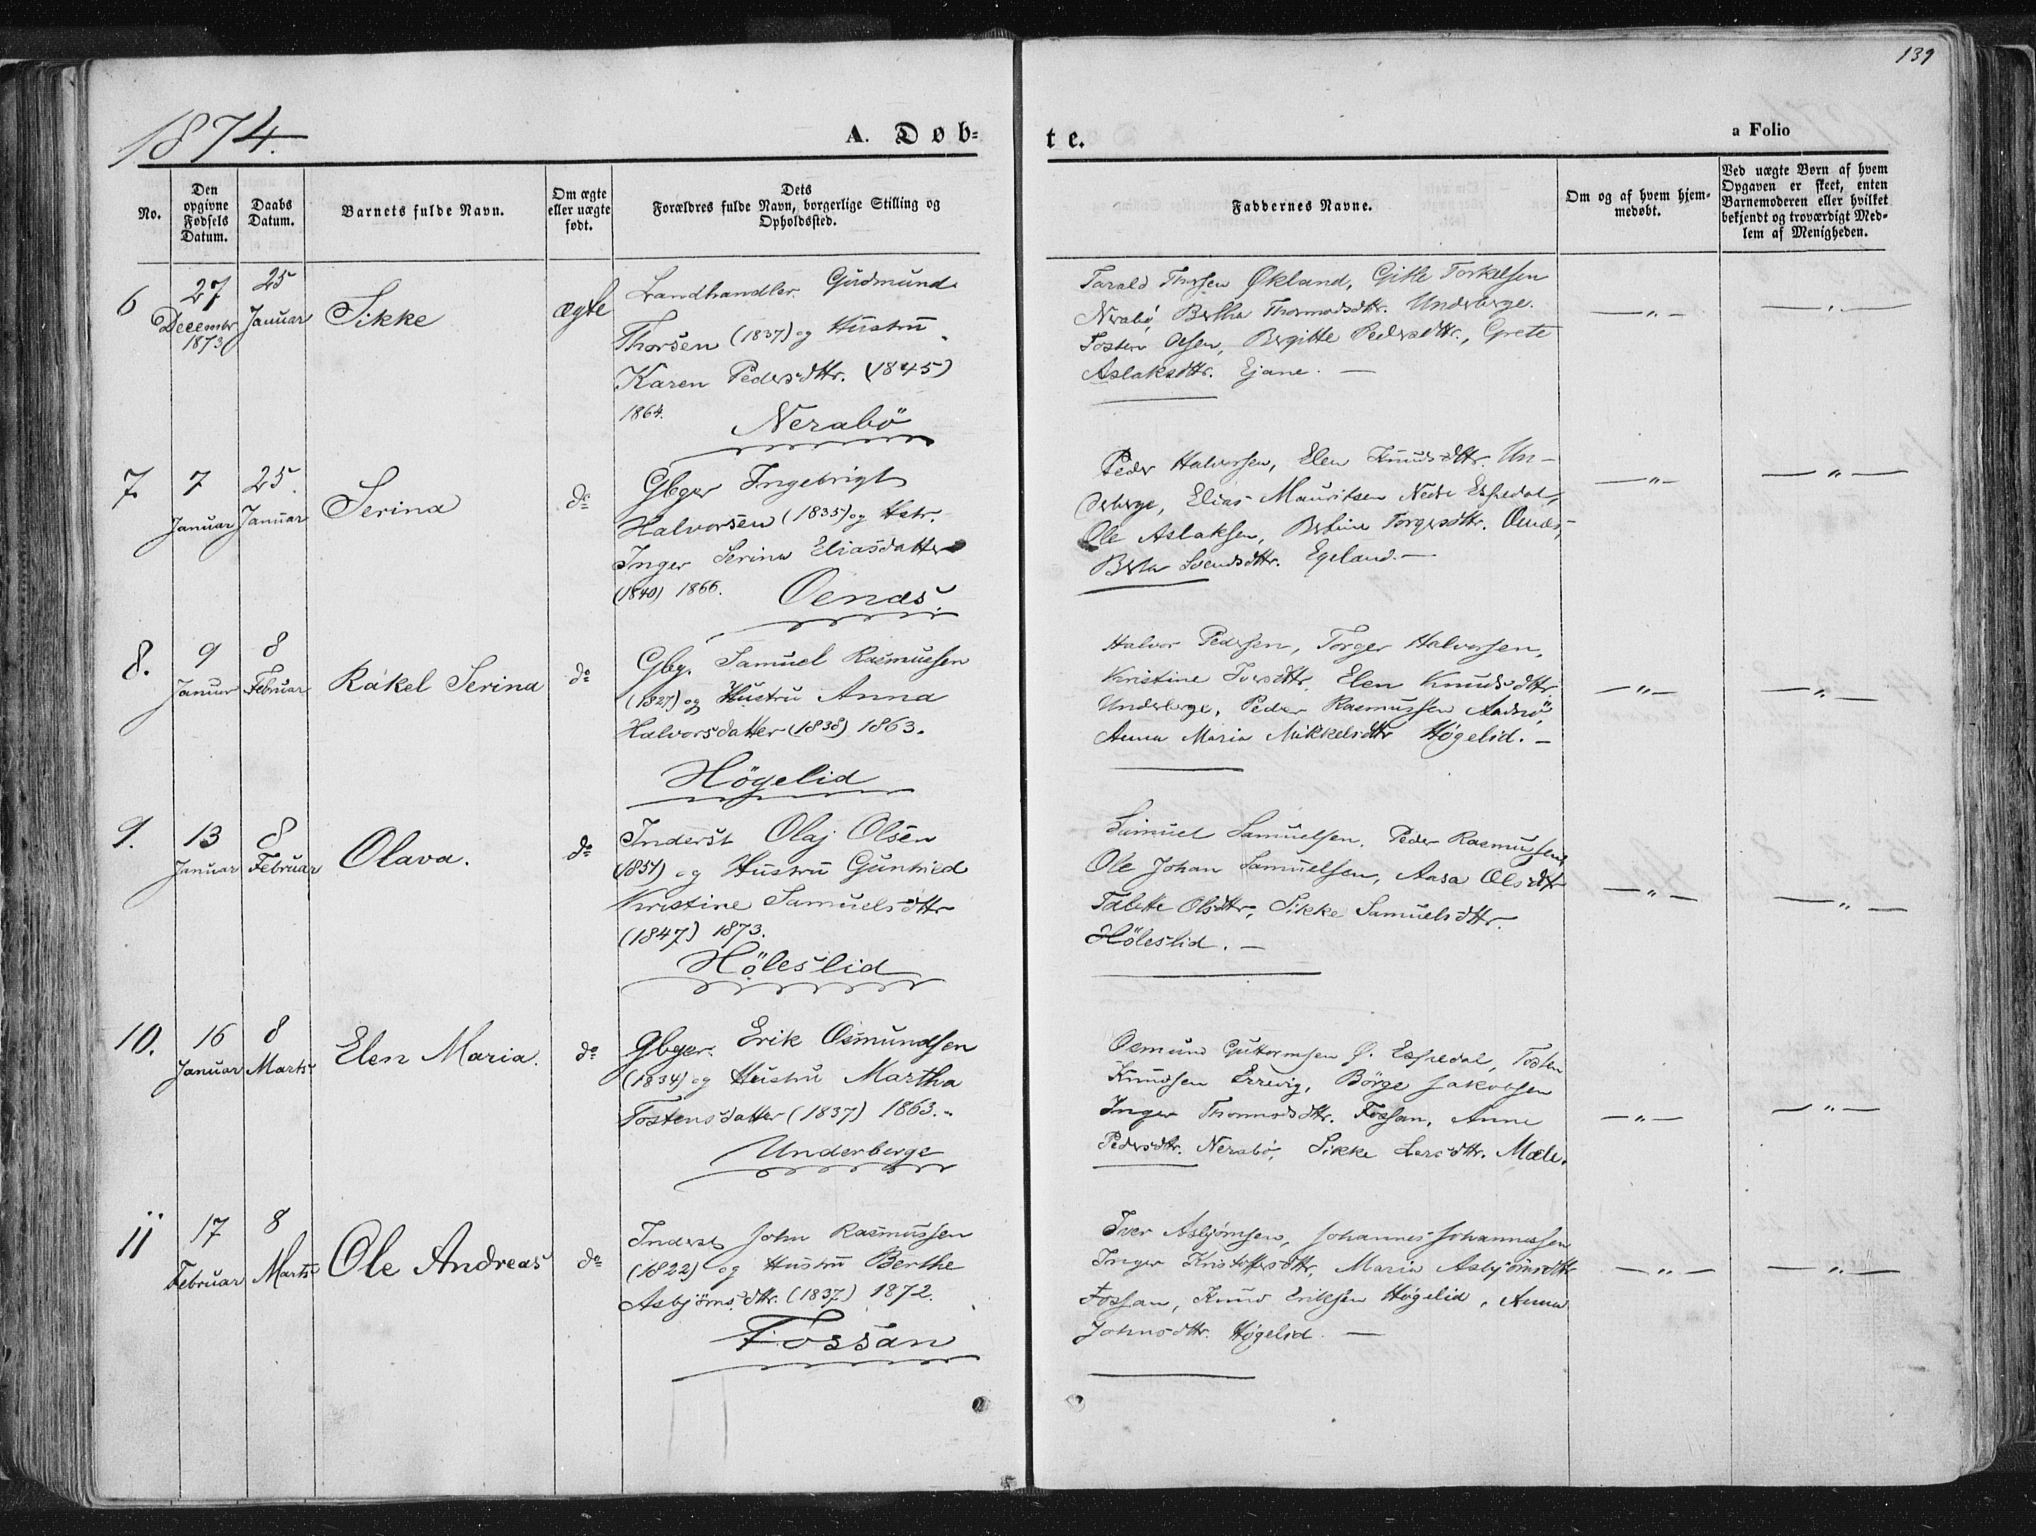 139
1874.
A. Døb-
te.
a Folio
No.
Den opgivne Fødsels Datum.
Daabs Datum.
Barnets fulde Navn.
Om ægte eller uægte født.
Dets Forældres fulde Navn, borgerlige Stilling og Opholdssted.
Faddernes Navne.
Om og af hvem hjem-
medøbt.
Ved uægte Børn af hvem
Opgaven er skeet, enten
Barnemoderen eller hvilket
bekjendt og troværdigt Med-
lem af Menigheden.
6
27 December 1873
25 Januar
Sikke
ægte
Landhandler Gudmund
Thorsen (1837) og Hustru
Karen Pedersdttr. (1845)
1864.
Nerabö
Tarald Thorsen Økland, Gitle Torkelsen
Nerabö, Berthe Thormodsdttr. Underberge.
Tosten Olsen, Bergitte Pedersdttr., Grete
Aslaksdttr. Ejane. —
— " —
— " —
7.
7 Januar
25. Januar
Serina
do
Gbgr Ingebrigt
Halvorsen (1835) og Hstr.
Inger Serina Eliasdatter
(1840) 1866.
Oenæs.
Peder Halvorsen, Elen Knudsdttr. Un-
derberge, Elias Mauritsen Nedre Espedal,
Ole Aslaksen, Bertine Torgersdttr. Oenæs,
Berta Svendsdttr. Egeland. —
— " —
— " —
8.
9 Januar
8 Februar
Rakel Serina
do
Gbg. Samuel Rasmussen
(1827) og Hustru Anna
Halvorsdatter (1838) 1863.
Högelid
Halvor Pedersen, Torger Halvorsen,
Kristine Iversdttr, Elen Knudsdttr
Underberge, Peder Rasmussen Aadnö,
Anna Maria Mikkelsdttr Høgelid. —
— " —
— " —
9.
13 Januar
8 Februar
Olava.
do
Inderst Olaj Olsen
(1851) og Hustru Gunhild
Kristine Samuelsdttr
(1847) 1873.
Höleslid
Samuel Samuelsen, Peder Rasmussen,
Ole Johan Samuelsen, Aasa Olsdttr
Tabette Olsdttr, Sikke Samuelsdttr.
Höleslid. —
— " —
— " —
10.
16 Januar
8 Marts
Elen Maria.
do
Gbger. Erik Osmundsen
(1834) og Hustru Martha
Tostensdatter (1837) 1863.
Underberge
Osmund Guttormsen Ø. Espedal, Tosten
Knudsen Errevig, Börge Jakobsen
Inger Thormodsdttr. Fossan, Anne
Pedersdttr. Nerabö, Sikke Larsdttr. Mæle.
— " —
— " —
11
17 Februar
8 Marts
Ole Andreas
do
Inderst John Rasmussen
(1822) og Hustru Berthe
Asbjörnsdttr. (1837) 1872.
Fossan
Iver Asbjörnsen, Johannes Johannessen
Inger Kristoffersdttr, Maria Asbjörnsdttr
Fossan, Knud Eriksen Høgelid, Anna
Johnsdttr. Høgelid. —
— " —
— " —